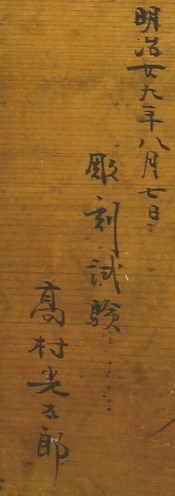 明治廿九年八月七日
彫刻試験
高村光太郎